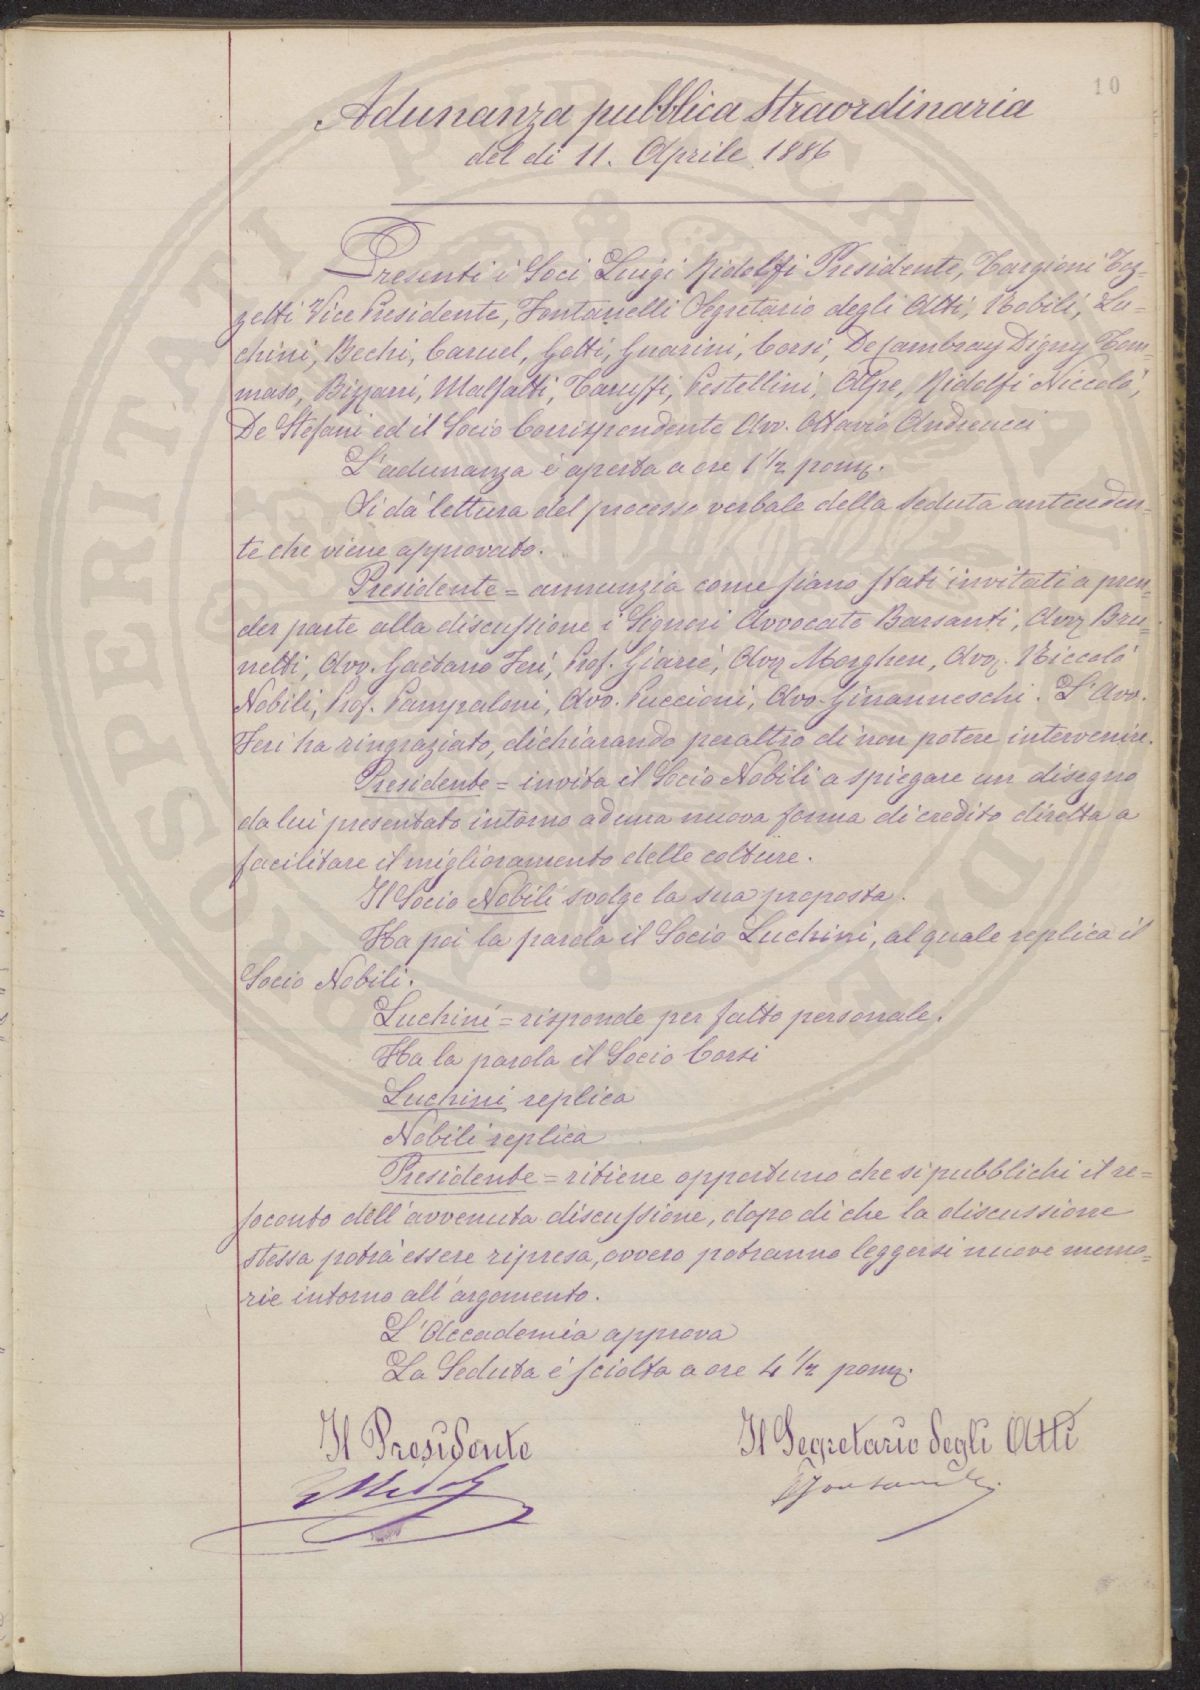 10
Adunanza pubblica straordinaria
del di 11. Aprile 1886
Presenti i Soci Luigi Ridolfi Presidente, Targioni Toz-
zetti Vice Presidente, Fontanelli Segretario degli Atti, Nobili, Lu=
chini, Bechi, Caruel, Gotti, Guarini, Corsi, De Cambray Digny Tom-
maso, Bizzarri, Malfatti, Taruffi, Pestellini, Alpe, Ridolfi Niccolò,
De Stefani ed il Socio Corrispondente Avv. Ottavio Andreucci
L'adunanza è aperta a ore 1 1/2 pomᵉ.
Si dà lettura del processo verbale della seduta anteceden-
te che viene approvato.
Presidente = annunzia come siano stati invitati a pren-
der parte alla discussione i Signori Avvocato Barsanti, Avv. Bru=
netti, Avv. Gaetano Feri, Prof. Giarré, Avv. Morghen, Avv. Niccolò
Nobili, Prof. Pampaloni, Avv. Puccioni, Avv. Ginanneschi. L'Avv.
Feri ha ringraziato, dichiarando peraltro di non potere intervenire.
Presidente = invita il Socio Nobili a spiegare un disegno
da lui presentato intorno ad una nuova forma di credito diretta a
facilitare il miglioramento delle colture.
Il Socio Nobili svolge la sua proposta.
Ha poi la parola il Socio Luchini, al quale replica il
Socio Nobili.
Luchini = risponde per fatto personale.
Ha la parola il Socio Corsi
Luchini replica
Nobili replica
Presidente = ritiene opportuno che si pubblichi il re=
soconto dell'avvenuta discussione, dopo di che la discussione
stessa potrà essere ripresa, ovvero potranno leggersi nuove memo=
rie intorno all'argomento.
L'Accademia approva
La Seduta è sciolta a ore 4 1/2 pomᵉ.
Il Presidente Il Segretario degli Atti
LRidolfi CFontanelli